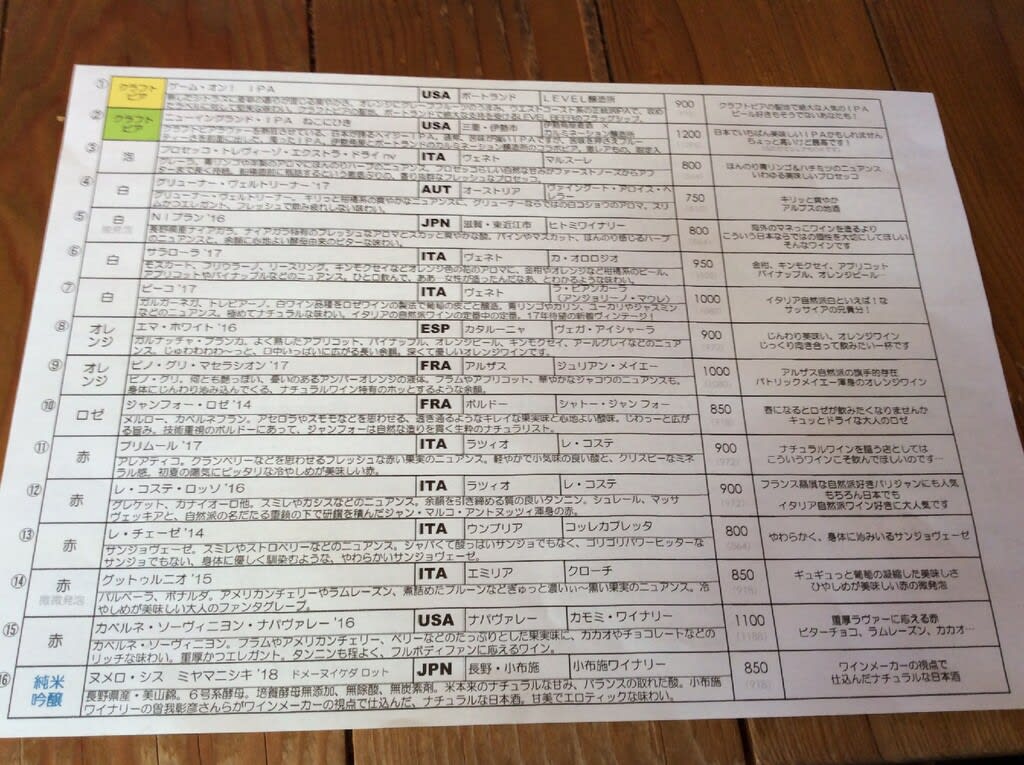 ① クラフトビア ゲーム・オン! IPA USA ポートランド LEVEL醸造所 900 クラフトビアの聖地で絶大な人気のIPA
ビール好きもそうでないあなたも!
② クラフトビア ニューイングランド・IPA ねこにひき USA 三重・伊勢市 1200 日本でいちばん美味しいIPAかもしれません
ちょっと高いけど最高です!
③ 泡 プロセッコ・トレヴィーゾ・エクストラ・ドライ nv ITA ヴェネト マルスーレ 800 ほんのり青リンゴ&ハチミツのニュアンス
いわゆる美味しいプロセッコ
④ 白 グリューナー・ヴェルトリーナー '17 AUT オーストリア ヴァイングート・アロイス・ヘレラー 750 キリッと爽やか
アルプスの地酒
⑤ 白 微発泡 NIブラン '16 JPN 滋賀・東近江市 ヒトミワイナリー 800 海外のマネっこワインを造るより
こういう日本ならではの個性を大切にしてほしい
そんなワインです
長野県産ナイアガラ。ナイアガラ特有のフレッシュなアロマとスカッと爽やかな酸。パインやマスカット、ほんのり感じるハーブ
のニュアンスと、余韻に心地よい酵母由来のビターな味わい。
⑥ 白 サラローラ '17 ITA ヴェネト カ・オロロジオ 950 金柑、キンモクセイ、アプリコット
パイナップル、オレンジピール…
モスカート、フリウラーノ、リースリング。キンモクセイなどオレンジ色の花のアロマに、金柑やオレンジなど柑橘系のピール、
アプリコットやパイナップルなどのニュアンス。ひと口飲んで、ああ、女性が造ったんだなあ、とわかるような味わい。
⑦ 白 ピーコ '17 ITA ヴェネト ラ・ビアンカーラ
(アンジョリーノ・マウレ) 1000 イタリア自然派白といえば!な
サッサイアの兄貴分!
ガルガーネガ、トレビアーノ。白ワイン品種をロゼワインの製法で葡萄の皮ごと醸造。青リンゴやカリン、ユーカリやジャスミン
などのニュアンス。極めてナチュラルな味わい。イタリアの自然派ワインの定番中の定番。17年待望の新着ヴィンテージ!
⑧ オレンジ エマ・ホワイト '16 ESP カタルーニャ ヴェガ・アイシャーラ 900 じんわり美味い、オレンジワイン
じっくり向き合って飲みたい一杯です
ガルナッチャ・ブランカ。よく熟したアプリコット、パイナップル、オレンジピール、キンモクセイ、アールグレイなどのニュア
ンス。じゅわわわわ〜っと、口中いっぱいに広がる長い余韻。深くて優しいオレンジワインです。
⑨ オレンジ ピノ・グリ・マセラシオン '17 FRA アルザス ジュリアン・メイエー 1000 アルザス自然派の旗手的存在
パトリックメイエー渾身のオレンジワイン
ピノ・グリ。何とも艶っぽい、憂いのあるアンバーオレンジの液体。プラムやアプリコット、華やかなジャコウのニュアンスも。
身体にじんわり沁み込んでくる、ナチュラルワイン特有のホッとするような余韻。
⑩ ロゼ ジャンフォー・ロゼ '14 FRA ボルドー シャトー・ジャンフォー 850 春になるとロゼが飲みたくなりませんか
キュッとドライな大人のロゼ
メルロー、カベルネフラン。アセロラやスモモなどを思わせる、透き通るようなキレイな果実味と心地よい酸味。じわぅーと広が
る旨み。技術重視のボルドーにあって、ジャンフォーは自然な造りを貫く生粋のナチュラリスト。
⑪ 赤 プリムール '17 ITA ラツィオ レ・コステ 900 (972) ナチュラルワインを謳う店としては
こういうワインこそ飲んでほしいのです…
アレアティコ。クランベリーなどを思わせるフレッシュな赤い果実のニュアンス。軽やかで小気味の良い酸と、クリスピーなミネ
ラル感。初夏の陽気にピッタリな冷やしめが美味しい赤。
⑫ 赤 レ・コステ・ロッソ '16 ITA ラツィオ レ・コステ 900 (972) フランス贔屓な自然派好きパリジャンにも人気
もちろん日本でも
イタリア自然派ワイン好きに大人気です
グレケット、カナイオーロ他。スミレやカシスなどのニュアンス。余韻を引き締める質の良いタンニン。シュレール、マッサ
ヴェッキアと、自然派の名だたる重鎮の下で研鑽を積んだジャン・マルコ・アントヌッツィ渾身の赤。
⑬ 赤 レ・チェーゼ '14 ITA ウンブリア コッレカプレッタ 800 (864) やわらかく、身体に沁みいるサンジョヴェーゼ
サンジョヴェーゼ。スミレやストロベリーなどのニュアンス。シャバくて酸っぱいサンジョでもなく、ゴリゴリパワーヒッターな
サンジョでもない、身体に優しく馴染むような、やわらかいサンジョヴェーゼ。
⑭ 赤 微微発泡 グットゥルニオ '15 ITA エミリア クローチ 850 (918) ギュギュっと葡萄の凝縮した美味しさ
ひやしめが美味しい赤の微発泡
バルベーラ、ボナルダ。アメリカンチェリーやラムレーズン、煮詰めたプルーンなどぎゅっと濃いぃ〜黒い果実のニュアンス。冷
やしめが美味しい大人のファンタグレープ。
⑮ 赤 カベルネ・ソーヴィニヨン・ナパヴァレー '16 USA ナパヴァレー カモミ・ワイナリー 1100 (1188) 重厚ラヴァーに応える赤
ビターチョコ、ラムレーズン、カカオ…
カベルネ・ソーヴィニヨン。プラムやアメリカンチェリー、ベリーなどのたっぷりとした果実味に、カカオやチョコレートなどの
リッチな味わい。重厚かつエレガント。タンニンも程よく、フルボディファンに応えるワイン。
16 純米吟醸 ヌメロ・シス ミヤマニシキ '18 ドメーヌイケダ ロット JPN 長野・小布施 小布施ワイナリー 850 (918) ワインメーカーの視点で
仕込んだナチュラルな日本酒
長野県産・美山錦。6号系酵母。培養酵母無添加、無除酸、無炭素剤。米本来のナチュラルな甘み、バランスの取れた酸。小布施
ワイナリーの曽我彰彦さんらがワインメーカーの視点で仕込んだ、ナチュラルな日本酒。甘美でエロティックな味わい。